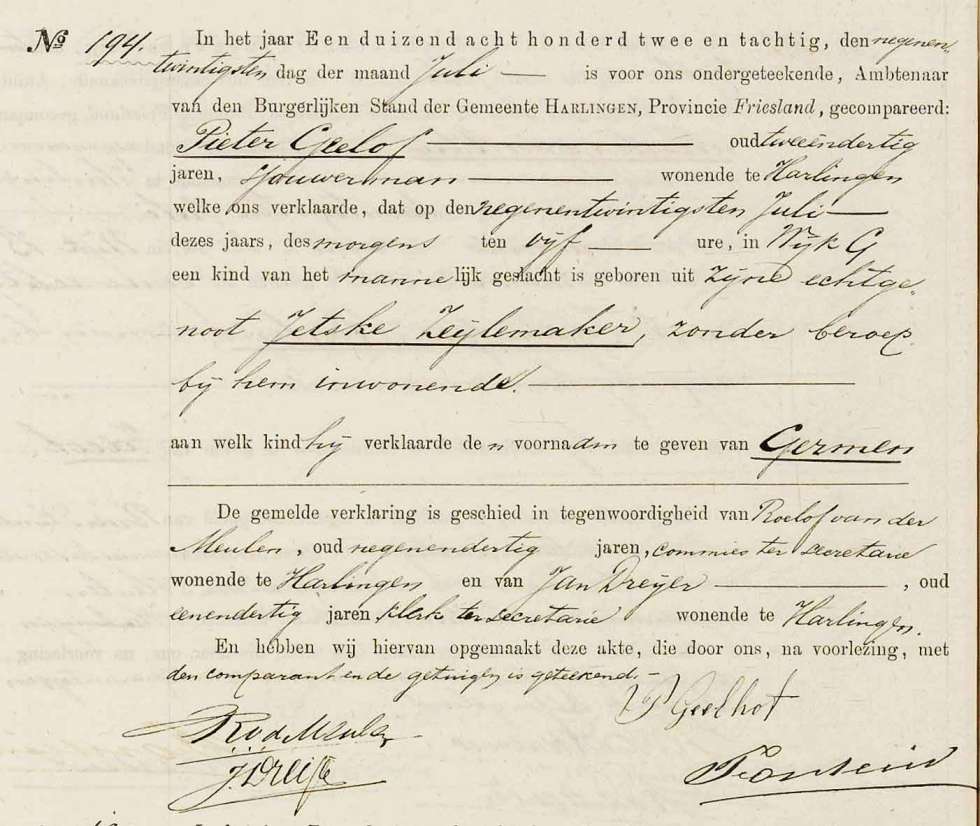 No 194. In het jaar Een duizend acht honderd twee en tachtig, den negenen-
twintigsten dag der maand Juli — is voor ons ondergeteekende, Ambtenaar
van den Burgerlijken Stand der Gemeente HARLINGEN, Provincie Friesland, gecompareerd:
Pieter Geelof — oud tweeëndertig
jaren, sjouwerman — wonende te Harlingen
welke ons verklaarde, dat op den negenentwintigsten Juli —
dezes jaars, des morgens ten vijf — ure, in Wijk G
een kind van het mannelijk geslacht is geboren uit zijne echtge-
noot Jetske Zeijlemaker, zonder beroep
bij hem inwonende. —
aan welk kind hij verklaarde den voornaam te geven van Germen
De gemelde verklaring is geschied in tegenwoordigheid van Roelof van der
Meulen, oud negenendertig jaren, commies ter secretarie
wonende te Harlingen en van Jan Dreijer —, oud
eenendertig jaren, klerk ter secretarie wonende te Harlingen.
En hebben wij hiervan opgemaakt deze akte, die door ons, na voorlezing, met
den comparant en de getuigen is geteekend. –
P Geelhof
R v d Meulen
J Dreijer
Fontein